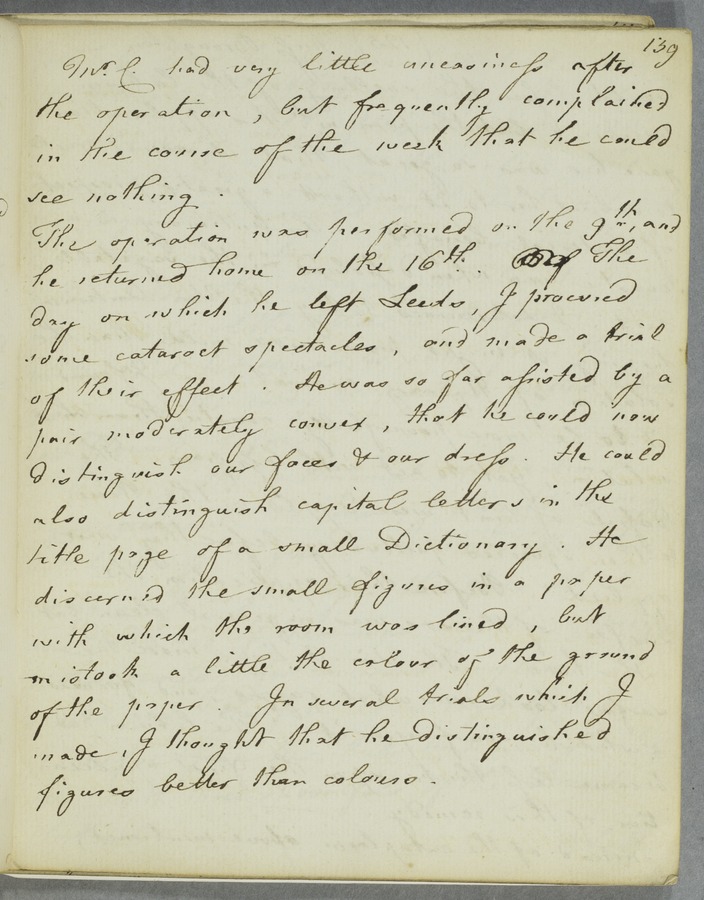 139
Mr. C. had very little uneasiness after
the operation, but frequently complained
in the course of the week that he could
see nothing.
The operation was performed on the 9th, and
he returned home on the 16th. The
day on which he left Leeds, I procured
some cataract spectacles, and made a trial
of their effect. He was so far assisted by a
pair moderately convex, that he could now
distinguish our faces & our dress. He could
also distinguish capital letters in the
title page of a small Dictionary. He
discerned the small figures in a paper
with which the room was lined, but
mistook a little the colour of the ground
of the paper. In several trials which I
made, I thought that he distinguished
figures better than colours.